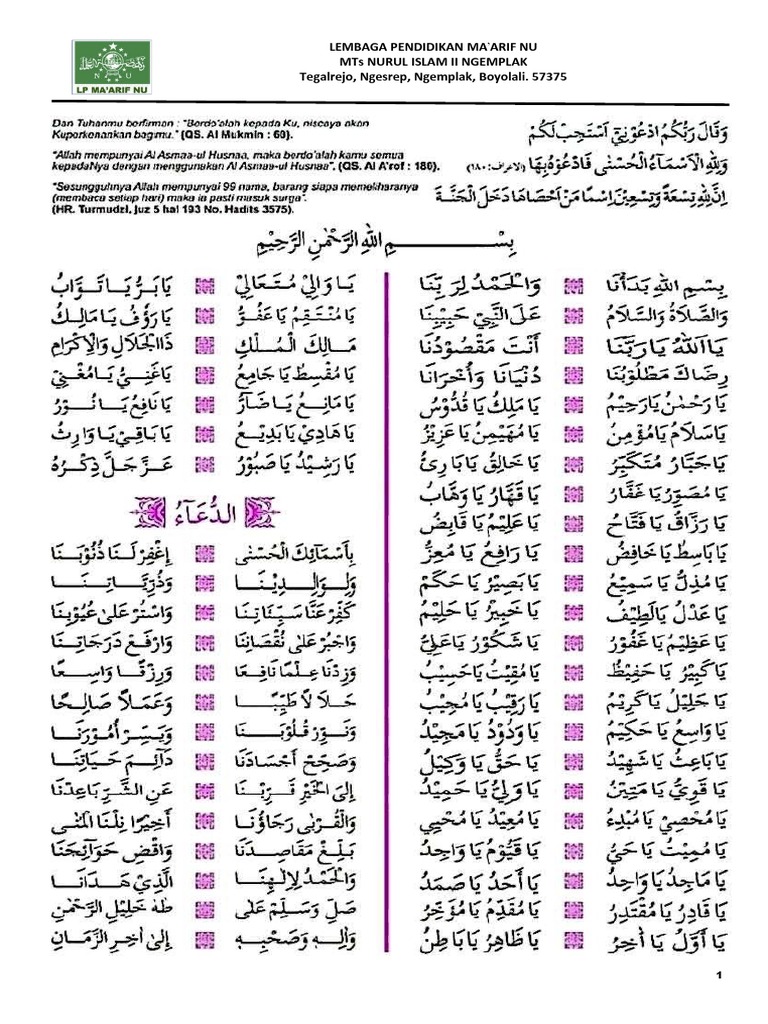 LP MA'ARIF NU
LEMBAGA PENDIDIKAN MA`ARIF NU
MTs NURUL ISLAM II NGEMPLAK
Tegalrejo, Ngesrep, Ngemplak, Boyolali. 57375
Dan Tuhanmu berfirman : "Berdo'alah kepada Ku, niscaya akan
Kuperkenankan bagimu." (QS. Al Mukmin : 60).
"Allah mempunyai Al Asmaa-ul Husnaa, maka berdo'alah kamu semua
kepadaNya dengan menggunakan Al Asmaa-ul Husnaa". (QS. Al A'rof : 180).
"Sesungguhnya Allah mempunyai 99 nama, barang siapa memeliharanya
(membaca setiap hari) maka ia pasti masuk surga".
(HR. Turmudzi, Juz 5 hal 193 No. Hadits 3575).
وَقَالَ رَبُّكُمُ ادْعُوْنِيْٓ اَسْتَجِبْ لَكُمْ
وَلِلّٰهِ الْاَسْمَآءُ الْحُسْنٰى فَادْعُوْهُ بِهَا (الاعراف: ١٨٠)
اِنَّ لِلّٰهِ تِسْعَةً وَتِسْعِيْنَ اِسْمًا مَنْ اَحْصَاهَا دَخَلَ الْجَنَّةَ
بِسْمِ اللّٰهِ الرَّحْمٰنِ الرَّحِيْمِ
بِسْمِ اللّٰهِ بَدَأْنَا وَالْحَمْدُ لِرَبِّنَا
وَالصَّلَاةُ وَالسَّلَامُ عَلَى النَّبِيِّ حَبِيْبِنَا
يَا اَللّٰهُ يَا رَبَّنَا اَنْتَ مَقْصُوْدُنَا
رِضَاكَ مَطْلُوْبُنَا دُنْيَانَا وَأُخْرَانَا
يَا رَحْمٰنُ يَا رَحِيْمُ يَا مَلِكُ يَا قُدُّوْسُ
يَا سَلَامُ يَا مُؤْمِنُ يَا مُهَيْمِنُ يَا عَزِيْزُ
يَا جَبَّارُ مُتَكَبِّرُ يَا خَالِقُ يَا بَارِئُ
يَا مُصَوِّرُ يَا غَفَّارُ يَا قَهَّارُ يَا وَهَّابُ
يَا رَزَّاقُ يَا فَتَّاحُ يَا عَلِيْمُ يَا قَابِضُ
يَا بَاسِطُ يَا خَافِضُ يَا رَافِعُ يَا مُعِزُّ
يَا مُذِلُّ يَا سَمِيْعُ يَا بَصِيْرُ يَا حَكَمُ
يَا عَدْلُ يَا لَطِيْفُ يَا خَبِيْرُ يَا حَلِيْمُ
يَا عَظِيْمُ يَا غَفُوْرُ يَا شَكُوْرُ يَا عَلِيُّ
يَا كَبِيْرُ يَا حَفِيْظُ يَا مُقِيْتُ يَا حَسِيْبُ
يَا جَلِيْلُ يَا كَرِيْمُ يَا رَقِيْبُ يَا مُجِيْبُ
يَا وَاسِعُ يَا حَكِيْمُ يَا وَدُوْدُ يَا مَجِيْدُ
يَا بَاعِثُ يَا شَهِيْدُ يَا حَقُّ يَا وَكِيْلُ
يَا قَوِيُّ يَا مَتِيْنُ يَا وَلِيُّ يَا حَمِيْدُ
يَا مُحْصِيْ يَا مُبْدِءُ يَا مُعِيْدُ يَا مُحْيِيْ
يَا مُمِيْتُ يَا حَيُّ يَا قَيُّوْمُ يَا وَاحِدُ
يَا مَاجِدُ يَا وَاحِدُ يَا أَحَدُ يَا صَمَدُ
يَا قَادِرُ يَا مُقْتَدِرُ يَا مُقَدِّمُ يَا مُؤَخِّرُ
يَا أَوَّلُ يَا أٰخِرُ يَا ظَاهِرُ يَا بَاطِنُ
يَا وَالِيْ مُتَعَالِيْ يَا بَرُّ يَا تَوَّابُ
يَا مُنْتَقِمُ يَا عَفُوُّ يَا رَؤُفُ يَا مَالِكُ
مَالِكَ الْمُلْكِ ذَاالْجَلَالِ وَالْإِكْرَامِ
يَا مُقْسِطُ يَا جَامِعُ يَا غَنِيُّ يَا مُغْنِيْ
يَا مَانِعُ يَا ضَآرُّ يَا نَافِعُ يَا نُوْرُ
يَا هَادِيْ يَا بَدِيْعُ يَا بَاقِيْ يَا وَارِثُ
يَا رَشِيْدُ يَا صَبُوْرُ عَزَّ جَلَّ ذِكْرُهُ
الدُّعَآءُ
بِأَسْمَآئِكَ الْحُسْنٰى إِغْفِرْ لَنَا ذُنُوْبَنَا
وَلِوَالِدِيْنَا وَذُرِّيَّاتِنَا
كَفِّرْ عَنَّا سَيِّئَاتِنَا وَاسْتُرْ عَلٰى عُيُوْبِنَا
وَاجْبُرْ عَلٰى نُقْصَانِنَا وَارْفَعْ دَرَجَاتِنَا
وَزِدْنَا عِلْمًا نَافِعًا وَرِزْقًا وَاسِعًا
حَلَالًا طَيِّبًا وَعَمَلًا صَالِحًا
وَنَوِّرْ قُلُوْبَنَا وَيَسِّرْ أُمُوْرَنَا
وَصَحِّحْ أَجْسَادَنَا دَآئِمَ حَيَاتِنَا
إِلَى الْخَيْرِ قَرِّبْنَا عَنِ الشَّرِّ بَاعِدْنَا
وَالْقُرْبٰى رَجَاؤُنَا أَخِيْرًا نِلْنَا الْمُنٰى
بَلِّغْ مَقَاصِدَنَا وَاقْضِ حَوَآئِجَنَا
وَالْحَمْدُ لِإِلٰهِنَا الَّذِيْ هَدَانَا
صَلِّ وَسَلِّمْ عَلٰى طٰهٰ خَلِيْلِ الرَّحْمٰنِ
وَأٰلِهِ وَصَحْبِهِ إِلٰى أٰخِرِ الزَّمَانِ
1